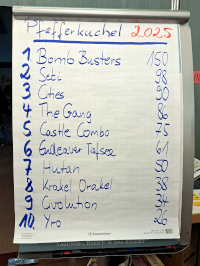 Pfefferkuchel 2025
1. Bomb Busters 150
2. Seti 98
3. Cities 90
4. The Gang 86
5. Castle Combo 75
6 Endeaver Tiefsee 61
7 Hutan 50
8 Krakel Orakel 38
9 Evolution 34
10. Yro 26